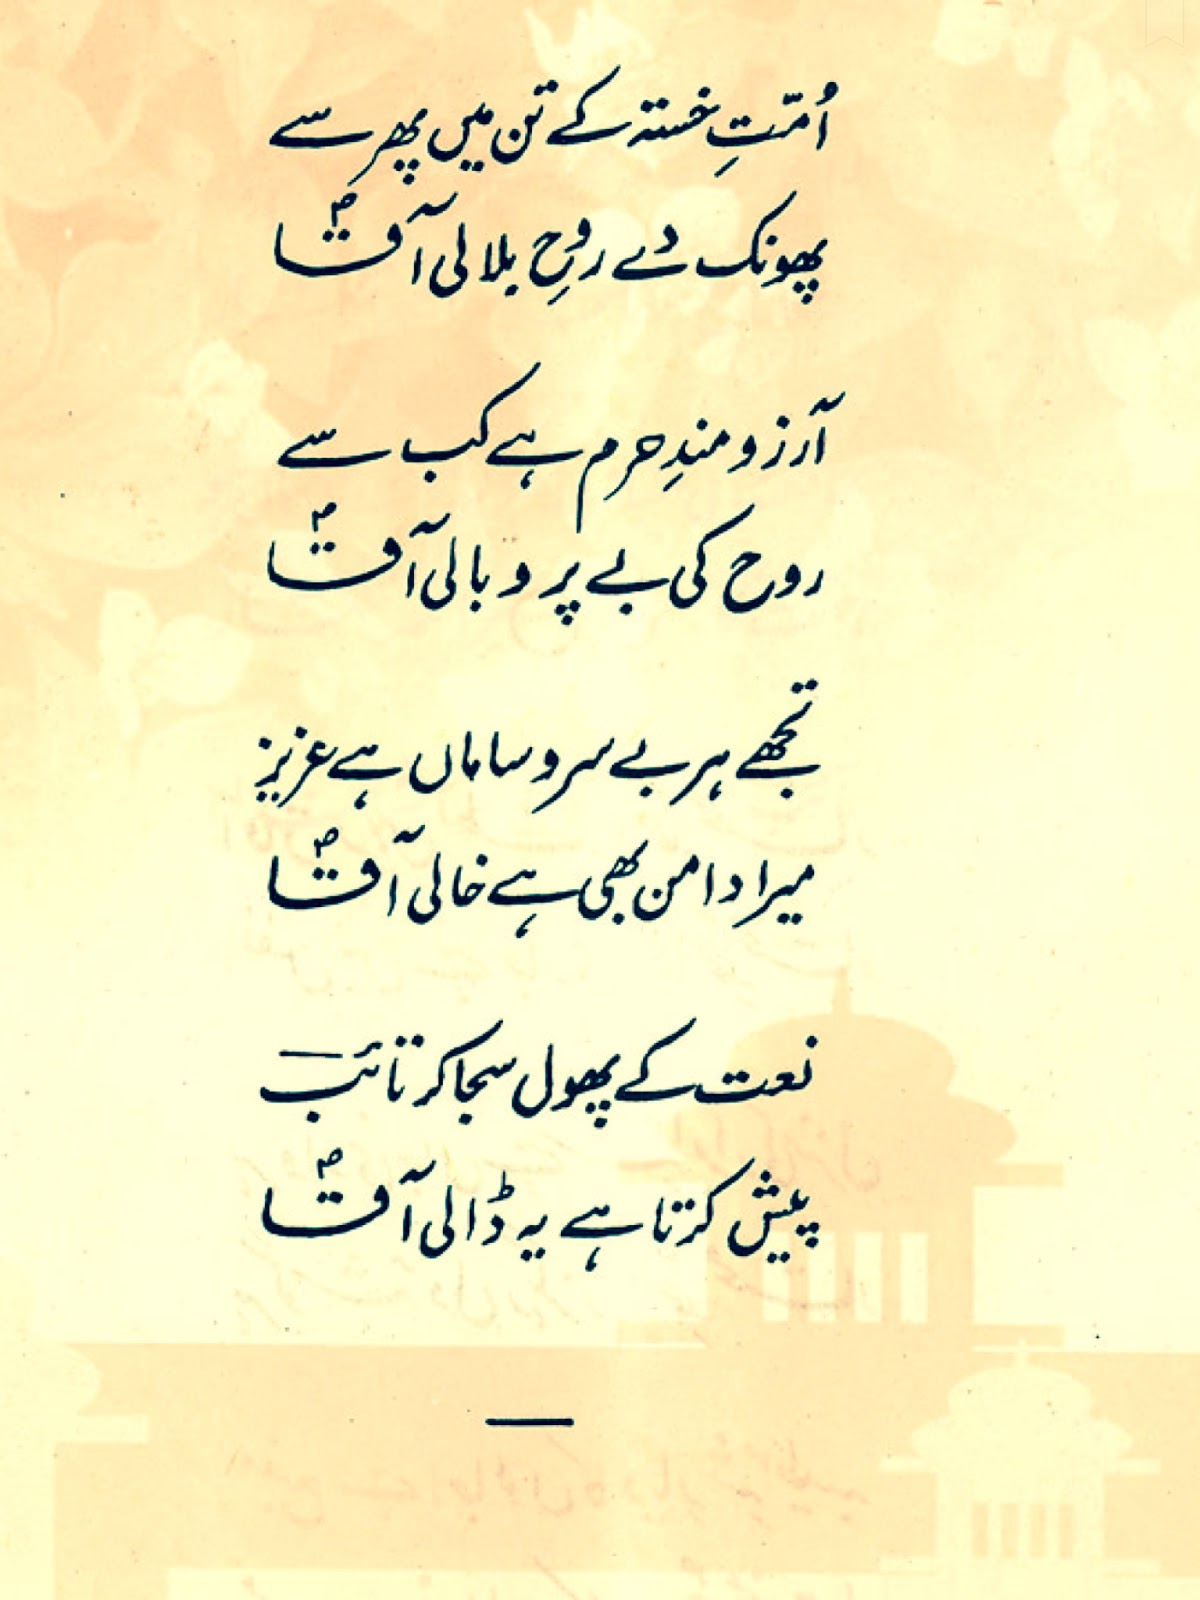 اُمّتِ خستہ کے تن میں پھر سے
پھونک دے روحِ بلالی آقاؐ
آرزو مندِ حرم ہے کب سے
روح کی بے پر و بالی آقاؐ
تجھے ہر بے سر و ساماں ہے عزیز
میرا دامن بھی ہے خالی آقاؐ
نعت کے پھول سجا کر تائبؔ
پیش کرتا ہے یہ ڈالی آقاؐ